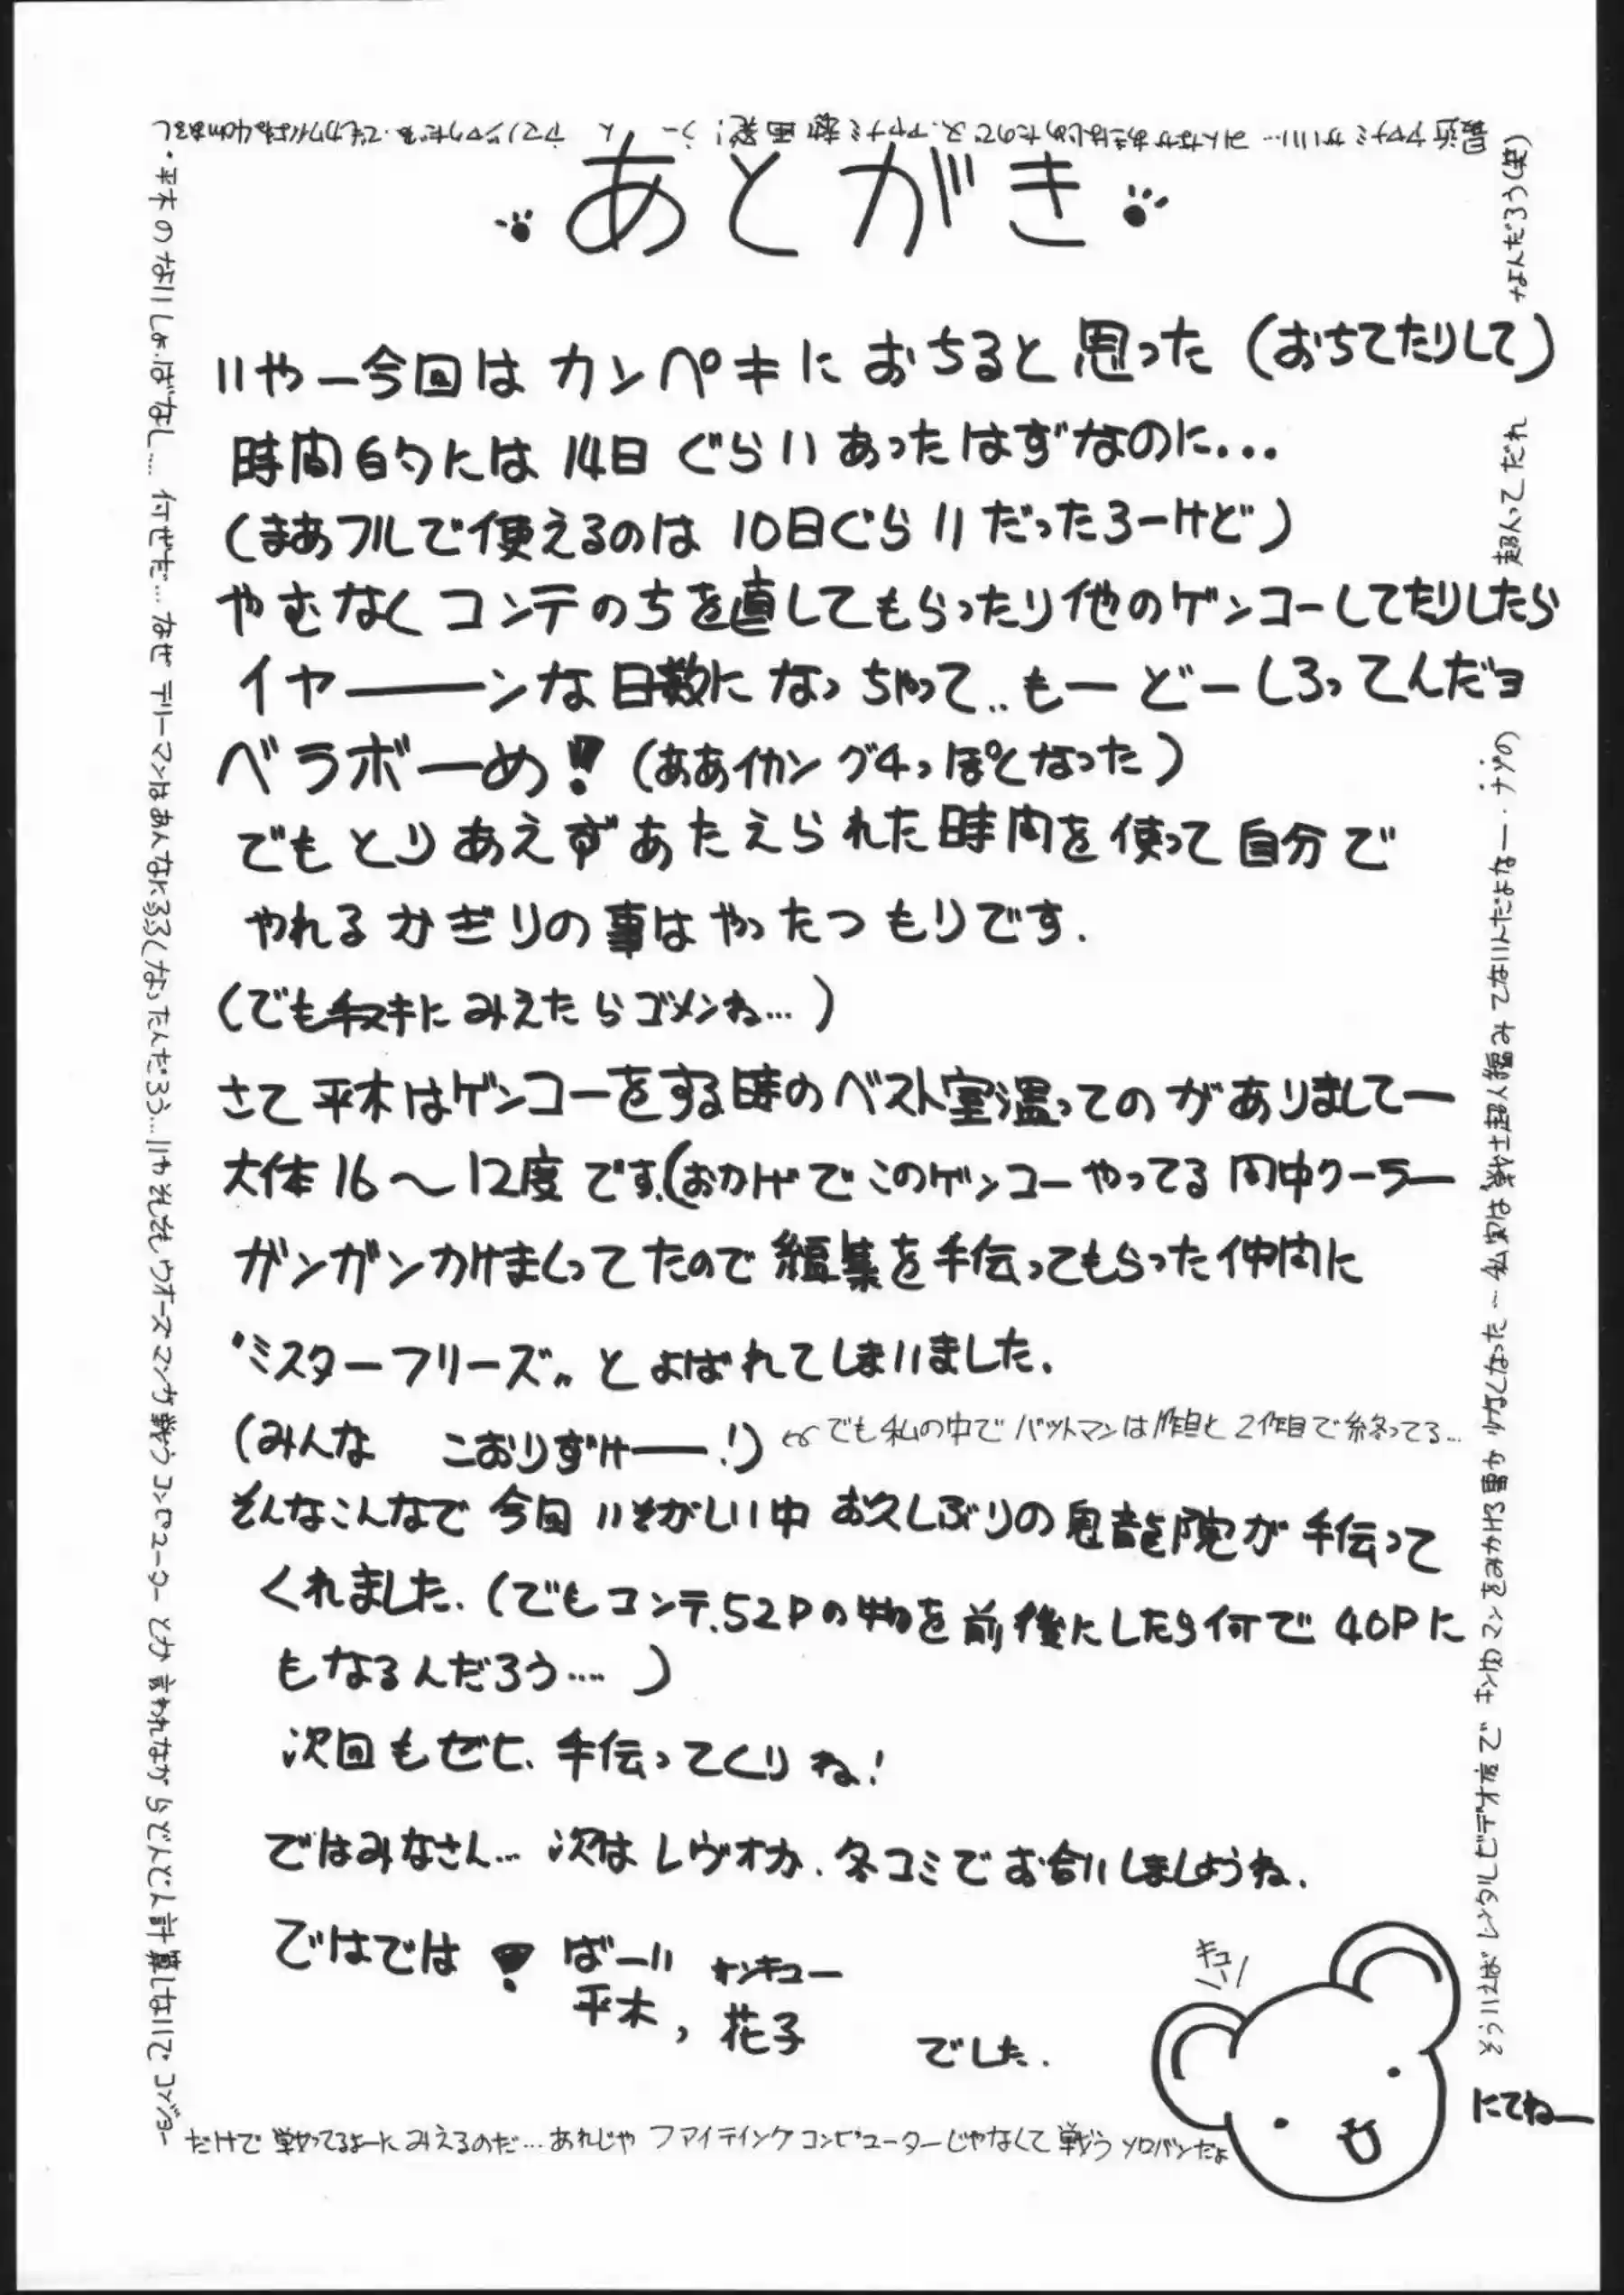 あとがき
いやー今回はカンペキにおちると思った(おちてたりして)
時間的には14日ぐらいあったはずなのに...
(まあフルで使えるのは10日ぐらいだったろーけど)
やむなくコンテのちを直してもらったり他のゲンコーしてたりしたら
イヤーーンな日数になっちゃって..もーどーしろってんだヨ
ベラボーめ!(ああイカングチっぽくなった)
でもとりあえずあたえられた時間を使って自分で
やれるかぎりの事はやったつもりです.
(でも手ヌキにみえたらゴメンね...)
さて平木はゲンコーをする時のベスト室温ってのがありましてー
大体16〜12度です.(おかげでこのゲンコーやってる間中クーラー
ガンガンかけまくってたので編集を手伝ってもらった仲間に
"ミスターフリーズ"とよばれてしまいました.
(みんな こおりずけーー!)
でも私の中でバットマンは1作目と2作目で終ってる...
そんなこんなで今回いそがしい中お久しぶりの鬼龍院が手伝って
くれました.(でもコンテ.52Pの物を前後にしたら何で40Pに
もなるんだろう....)
次回もぜヒ、手伝ってくりね!
ではみなさん...次はレヴォか.冬コミでお合いしましょうね.
ではでは!ばーい サンキュー
平木,花子 でした.
キュー
・平木のないしょばなし....何ぜだ...なぜテリーマンはあんなにふるくなったんだろう...いやそもそもウォーズマンが戦うコンピューターとか言われながらどんどん計算しないでコンジョー
だけで戦ってるよーにみえるのだ...あれじゃファイティングコンピューターじゃなくて戦うソロバンだよ
そういえばレンタルビデオ店でキン肉マンをみかける事が少なくなった〜私実は戦士超人編みてないんだよなー.ナゾの
超人ってだれ
なんだろう(笑)
にてねー